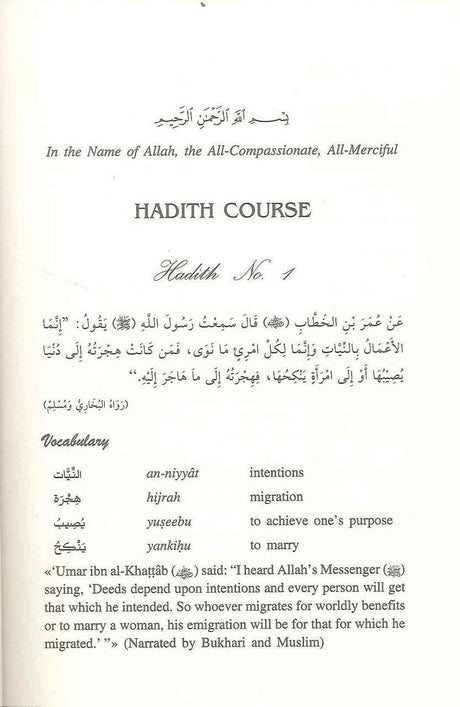 بِسْمِ اللَّهِ الرَّحْمَٰنِ الرَّحِيمِ
In the Name of Allah, the All-Compassionate, All-Merciful
HADITH COURSE
Hadith No. 1
عَنْ عُمَرَ بْنِ الخَطَّابِ (رضي الله عنه) قَالَ سَمِعْتُ رَسُولَ اللَّهِ (ﷺ) يَقُولُ: ”إِنَّمَا
الأَعْمَالُ بِالنِّيَّاتِ وَإِنَّمَا لِكُلِّ امْرِئٍ مَا نَوَى، فَمَن كَانَتْ هِجْرَتُهُ إِلَى دُنْيَا
يُصِيْبُهَا أَوْ إِلَى امْرَأَةٍ يَنْكِحُهَا، فَهِجْرَتُهُ إِلَى مَا هَاجَرَ إِلَيْهِ.“
(رَوَاهُ البُخَارِيُّ وَمُسْلِمٌ)
Vocabulary
النِّيَّات an-niyyât intentions
هِجْرَة hijrah migration
يُصِيبُ yuṣeebu to achieve one's purpose
يَنْكِحُ yankiḥu to marry
«‘Umar ibn al-Khaṭṭâb (رضي الله عنه) said: “I heard Allah’s Messenger (ﷺ)
saying, ‘Deeds depend upon intentions and every person will get
that which he intended. So whoever migrates for worldly benefits
or to marry a woman, his emigration will be for that for which he
migrated.’ ”» (Narrated by Bukhari and Muslim)